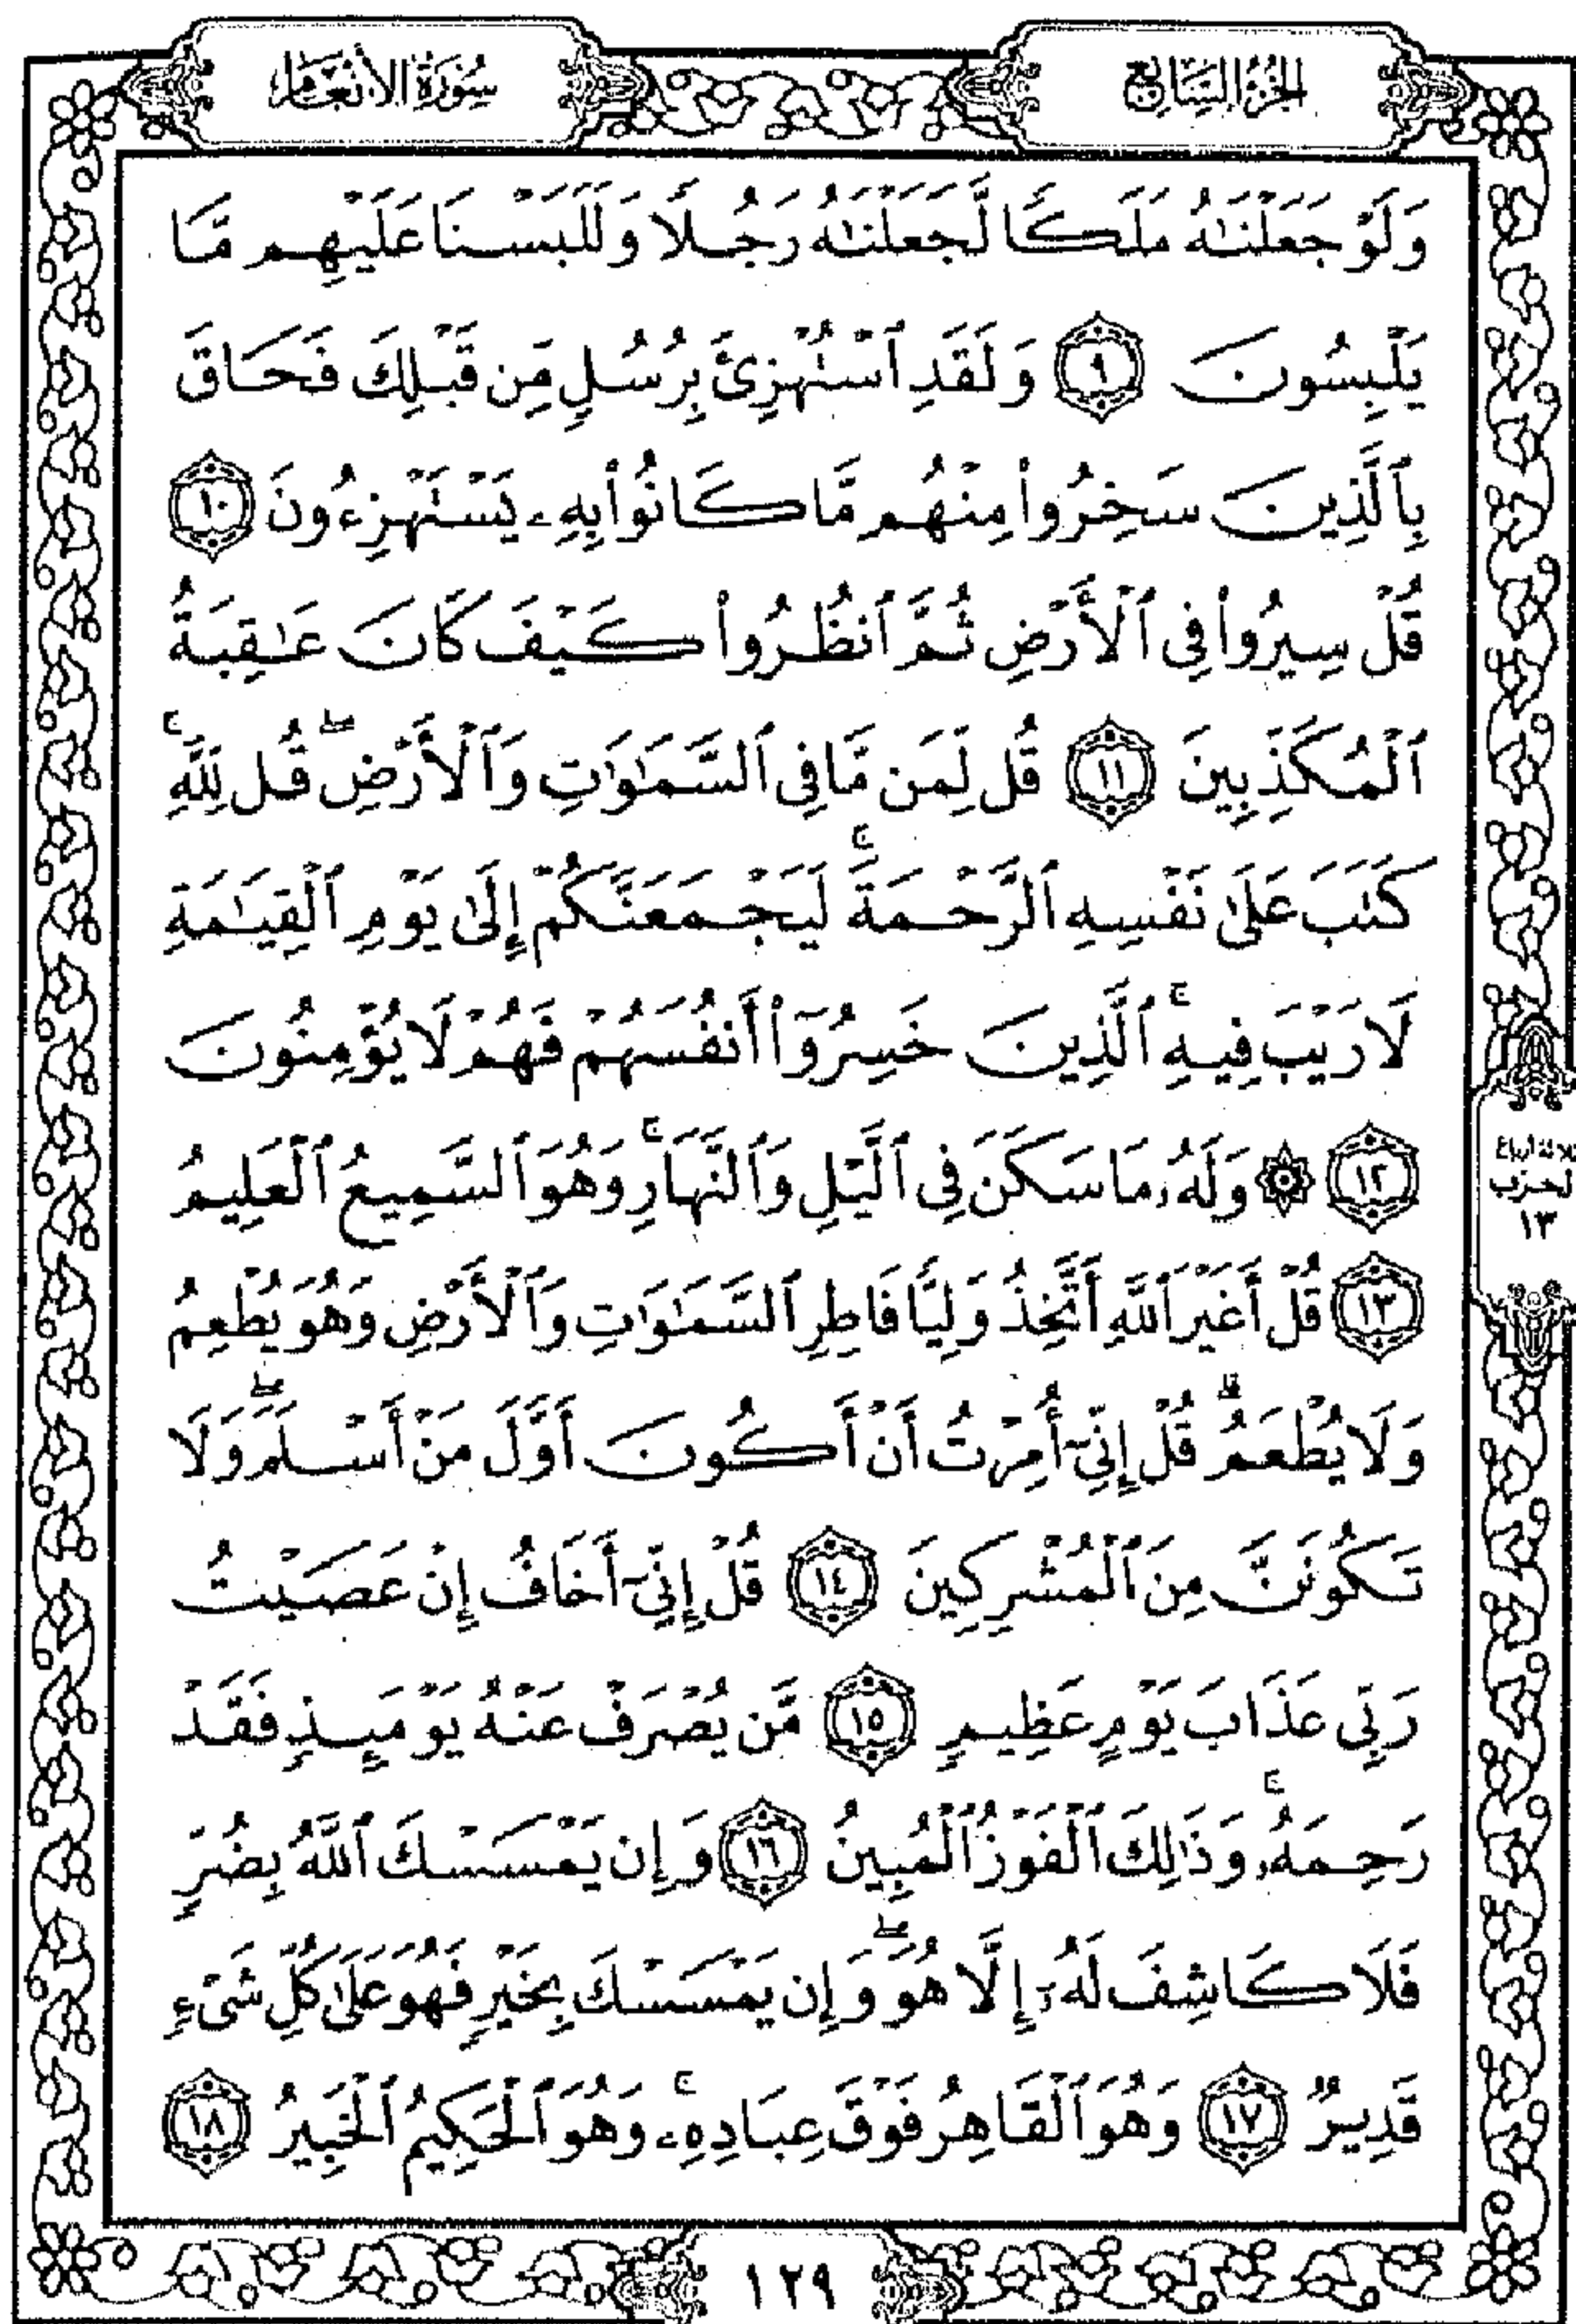 الجزء السابع
سورة الأنعام
وَلَوْ جَعَلْنَٰهُ مَلَكًا لَّجَعَلْنَٰهُ رَجُلًا وَلَلَبَسْنَا عَلَيْهِم مَّا
يَلْبِسُونَ ٩ وَلَقَدِ ٱسْتُهْزِئَ بِرُسُلٍ مِّن قَبْلِكَ فَحَاقَ
بِٱلَّذِينَ سَخِرُوا۟ مِنْهُم مَّا كَانُوا۟ بِهِۦ يَسْتَهْزِءُونَ ١٠
قُلْ سِيرُوا۟ فِى ٱلْأَرْضِ ثُمَّ ٱنظُرُوا۟ كَيْفَ كَانَ عَٰقِبَةُ
ٱلْمُكَذِّبِينَ ١١ قُل لِّمَن مَّا فِى ٱلسَّمَٰوَٰتِ وَٱلْأَرْضِ ۖ قُل لِّلَّهِ ۚ
كَتَبَ عَلَىٰ نَفْسِهِ ٱلرَّحْمَةَ ۚ لَيَجْمَعَنَّكُمْ إِلَىٰ يَوْمِ ٱلْقِيَٰمَةِ
لَا رَيْبَ فِيهِ ۚ ٱلَّذِينَ خَسِرُوٓا۟ أَنفُسَهُمْ فَهُمْ لَا يُؤْمِنُونَ
١٢ ۞ وَلَهُۥ مَا سَكَنَ فِى ٱلَّيْلِ وَٱلنَّهَارِ ۚ وَهُوَ ٱلسَّمِيعُ ٱلْعَلِيمُ
١٣ قُلْ أَغَيْرَ ٱللَّهِ أَتَّخِذُ وَلِيًّا فَاطِرِ ٱلسَّمَٰوَٰتِ وَٱلْأَرْضِ وَهُوَ يُطْعِمُ
وَلَا يُطْعَمُ ۗ قُلْ إِنِّىٓ أُمِرْتُ أَنْ أَكُونَ أَوَّلَ مَنْ أَسْلَمَ ۖ وَلَا
تَكُونَنَّ مِنَ ٱلْمُشْرِكِينَ ١٤ قُلْ إِنِّىٓ أَخَافُ إِنْ عَصَيْتُ
رَبِّى عَذَابَ يَوْمٍ عَظِيمٍ ١٥ مَّن يُصْرَفْ عَنْهُ يَوْمَئِذٍ فَقَدْ
رَحِمَهُۥ ۚ وَذَٰلِكَ ٱلْفَوْزُ ٱلْمُبِينُ ١٦ وَإِن يَمْسَسْكَ ٱللَّهُ بِضُرٍّ
فَلَا كَاشِفَ لَهُۥٓ إِلَّا هُوَ ۖ وَإِن يَمْسَسْكَ بِخَيْرٍ فَهُوَ عَلَىٰ كُلِّ شَىْءٍ
قَدِيرٌ ١٧ وَهُوَ ٱلْقَاهِرُ فَوْقَ عِبَادِهِۦ ۚ وَهُوَ ٱلْحَكِيمُ ٱلْخَبِيرُ ١٨
١٣
١٢٩